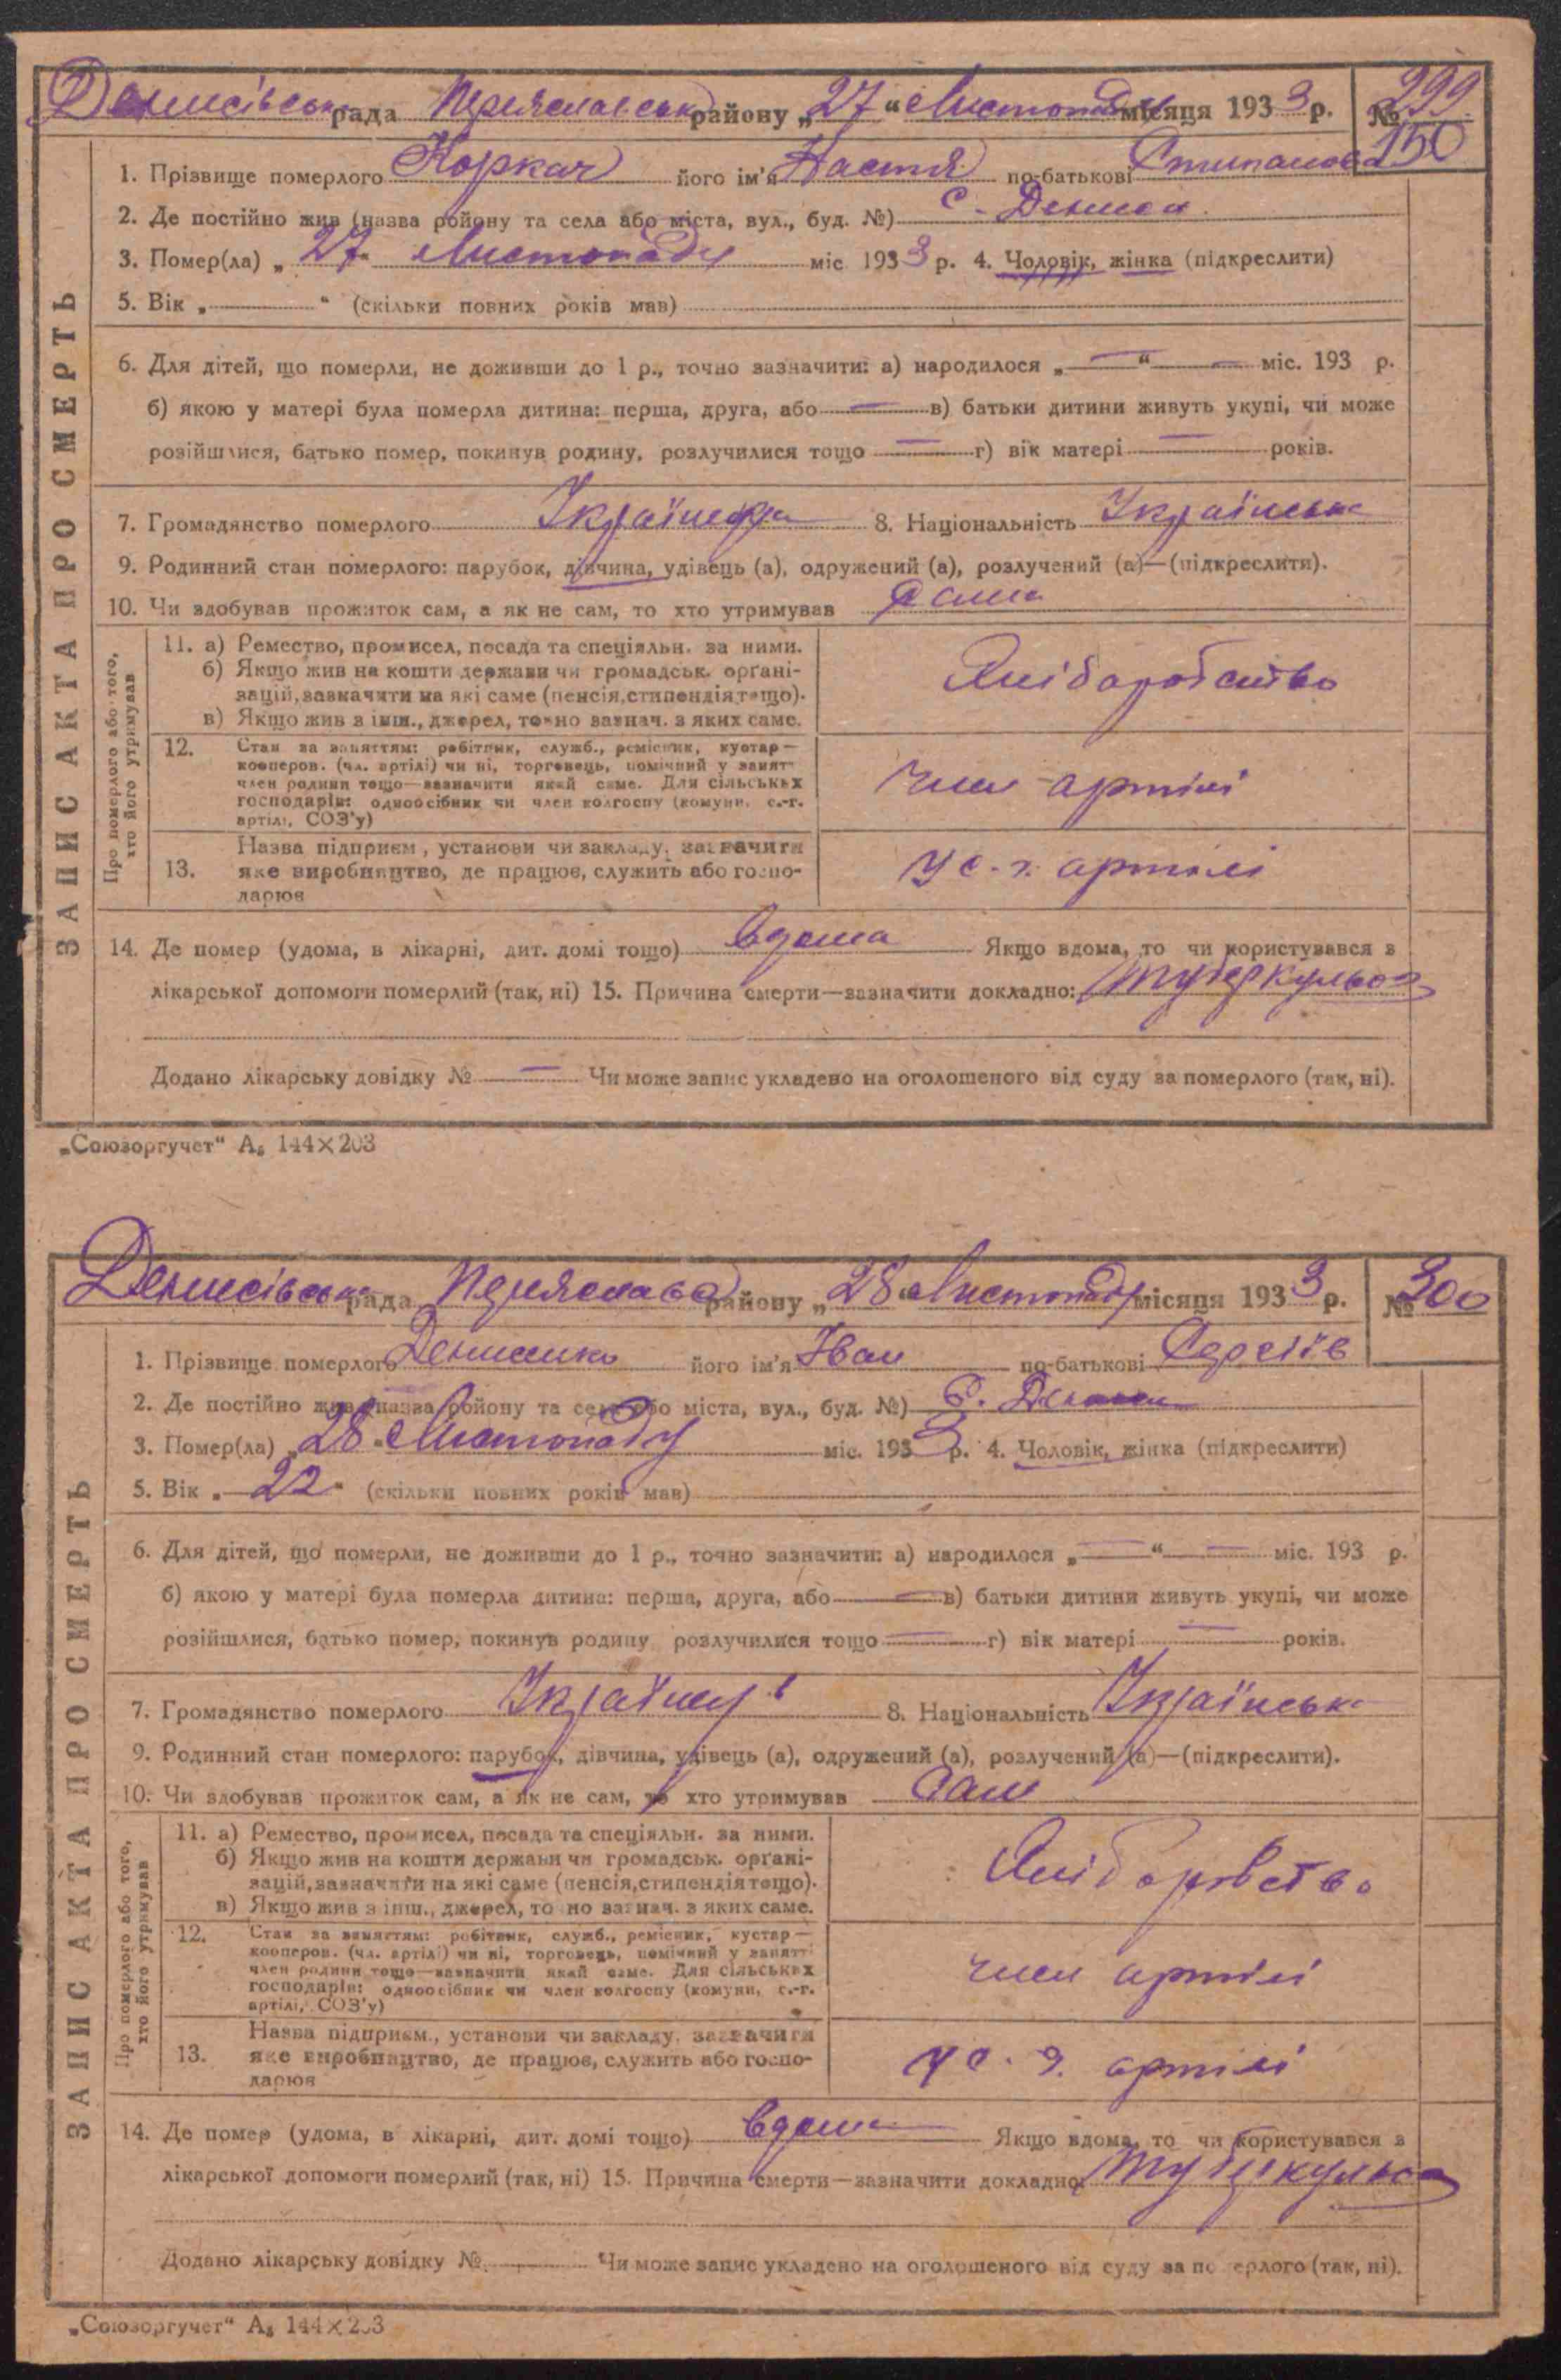 Денисівська рада Переяславськ району „27“ Листопаду місяця 1933 р. № 299
150
1. Прізвище померлого Коркач його ім'я Настя по-батькові Степанова
2. Де постійно жив (назва ройону та села або міста, вул., буд. №) с. Дениси
3. Помер(ла) „27“ Листопаду міс 1933 р. 4. Чоловік, жінка (підкреслити)
5. Вік „ “ (скільки повних років мав)
6. Для дітей, що померли, не доживши до 1 р., точно зазначити: а) народилося „—“ — міс. 193 р.
б) якою у матері була померла дитина: перша, друга, або — в) батьки дитини живуть укупі, чи може
розійшлися, батько помер, покинув родину, розлучилися тощо — г) вік матері — років.
7. Громадянство померлого 8. Національність Українська
9. Родинний стан померлого: парубок, дівчина, удівець (а), одружений (а), розлучений (а)—(підкреслити).
10. Чи здобував прожиток сам, а як не сам, то хто утримував сама
11. а) Ремество, промисел, посада та спеціяльн. за ними.
б) Якщо жив на кошти держави чи громадськ. орґані-
зацій, зазначити на які саме (пенсія, стипендія тощо).
в) Якщо жив з інш., джерел, точно зазнач. з яких саме.
Хліборобство
12. Стан за заняттям: робітник, служб., ремісник, кустар—
кооперов. (чл. артілі) чи ні, торговець, помічний у занятт
член родини тощо—зазначити який саме. Для сільських
господарів: одноосібник чи член колгоспу (комуни, с.-г.
артілі, СОЗ'у)
член артілі
13. Назва підприєм, установи чи закладу, зазначити
яке виробництво, де працює, служить або госпо-
дарює
у с. г. артілі
14. Де помер (удома, в лікарні, дит. домі тощо) вдома Якщо вдома, то чи користувався з
лікарської допомоги померлий (так, ні) 15. Причина смерти—зазначити докладно: туберкульоз
Додано лікарську довідку № — Чи може запис укладено на оголошеного від суду за померлого (так, ні).
ЗАПИС АКТА ПРО СМЕРТЬ
Про померлого або того,
хто його утримував
„Союзоргучет“ А₅ 144×203
Денисівська рада Переяславськ району „28“ Листопаду місяця 1933 р. № 300
1. Прізвище померлого Денисенко його ім'я Іван по-батькові Сергіїв
2. Де постійно жив (назва ройону та села або міста, вул., буд. №) с. Дениси
3. Помер(ла) „28“ Листопаду міс. 1933 р. 4. Чоловік, жінка (підкреслити)
5. Вік „22“ (скільки повних років мав)
6. Для дітей, що померли, не доживши до 1 р., точно зазначити: а) народилося „—“ — міс. 193 р.
б) якою у матері була померла дитина: перша, друга, або — в) батьки дитини живуть укупі, чи може
розійшлися, батько помер, покинув родину, розлучилися тощо — г) вік матері — років.
7. Громадянство померлого 8. Національність Українськ
9. Родинний стан померлого: парубок, дівчина, удівець (а), одружений (а), розлучений (а)—(підкреслити).
10. Чи здобував прожиток сам, а як не сам, то хто утримував Сам
11. а) Ремество, промисел, посада та спеціяльн. за ними.
б) Якщо жив на кошти держави чи громадськ. орґані-
зацій, зазначити на які саме (пенсія, стипендія тощо).
в) Якщо жив з інш., джерел, точно зазнач. з яких саме.
Хліборобство
12. Стан за заняттям: робітник, служб., ремісник, кустар—
кооперов. (чл. артілі) чи ні, торговець, помічний у занятт
член родини тощо—зазначити який саме. Для сільських
господарів: одноосібник чи член колгоспу (комуни, с.-г.
артілі, СОЗ'у)
член артілі
13. Назва підприєм., установи чи закладу, зазначити
яке виробництво, де працює, служить або госпо-
дарює
у с. г. артілі
14. Де помер (удома, в лікарні, дит. домі тощо) вдома Якщо вдома, то чи користувався з
лікарської допомоги померлий (так, ні) 15. Причина смерти—зазначити докладно: туберкульоз
Додано лікарську довідку № Чи може запис укладено на оголошеного від суду за померлого (так, ні).
ЗАПИС АКТА ПРО СМЕРТЬ
Про померлого або того,
хто його утримував
„Союзоргучет“ А₅ 144×203